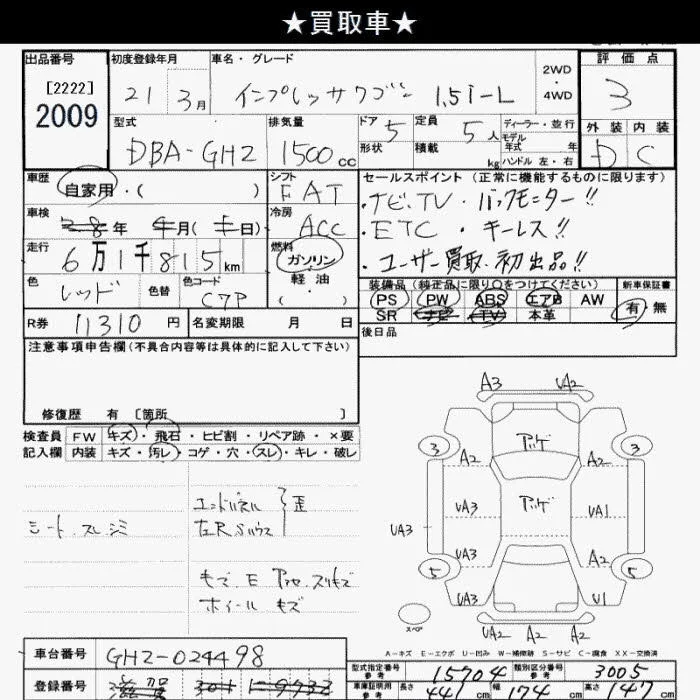 ★買取車★
出品番号 初度登録年月 車名・グレード 2WD・4WD 評価点
[2222] 2009 21 3月 インプレッサワゴン 1.5i-L 3
型式 排気量 ドア 5 定員 5人 ディーラー・並行 外装 内装
DBA-GH2 1500cc 形状 積載 kg モデル年式 年 ハンドル 左・右 D C
車歴 シフト セールスポイント(正常に機能するものに限ります)
自家用・( ) FAT ・ナビ.TV・バックモニター!!
車検 冷房 ・ETC・キーレス!!
年 月( 日) ACC
走行 燃料 ・ユーザー買取.初出品!!
6万1千815km ガソリン
色 色替 色コード 軽油 装備品(純正品に限り○をつけてください) 新車保証書
レッド C7P ・( ) PS PW ABS エアB AW 有・無
R券 11310円 名変期限 月 日 SR ナビ TV 本革
注意事項申告欄(不具合内容等は具体的に記入して下さい) 後日品
修復歴 有 [箇所 ]
検査員 FW キズ・飛石・ヒビ割・リペア跡・×要
記入欄 内装 キズ・汚レ・コゲ・穴・スレ・キレ・破レ
エンドパネル 歪
シート.スレ.シミ
A3 UA2
アッゲ
3 3
A2 A2
アッゲ
UA3 UA3 UA1
UA3 A2
5 5
UA3 U1
スペア
UA2 A2 A2
ホイール キズ
A-キズ E-エクボ U-凹み W-補修跡 S-サビ C-腐食 XX-交換済
車台番号 GH2-024498
型式指定番号 参考 15704 類別区分番号 参考 3005
登録番号 滋賀
車庫証明用 参考 長さ 441cm 幅 174cm 高さ 147cm